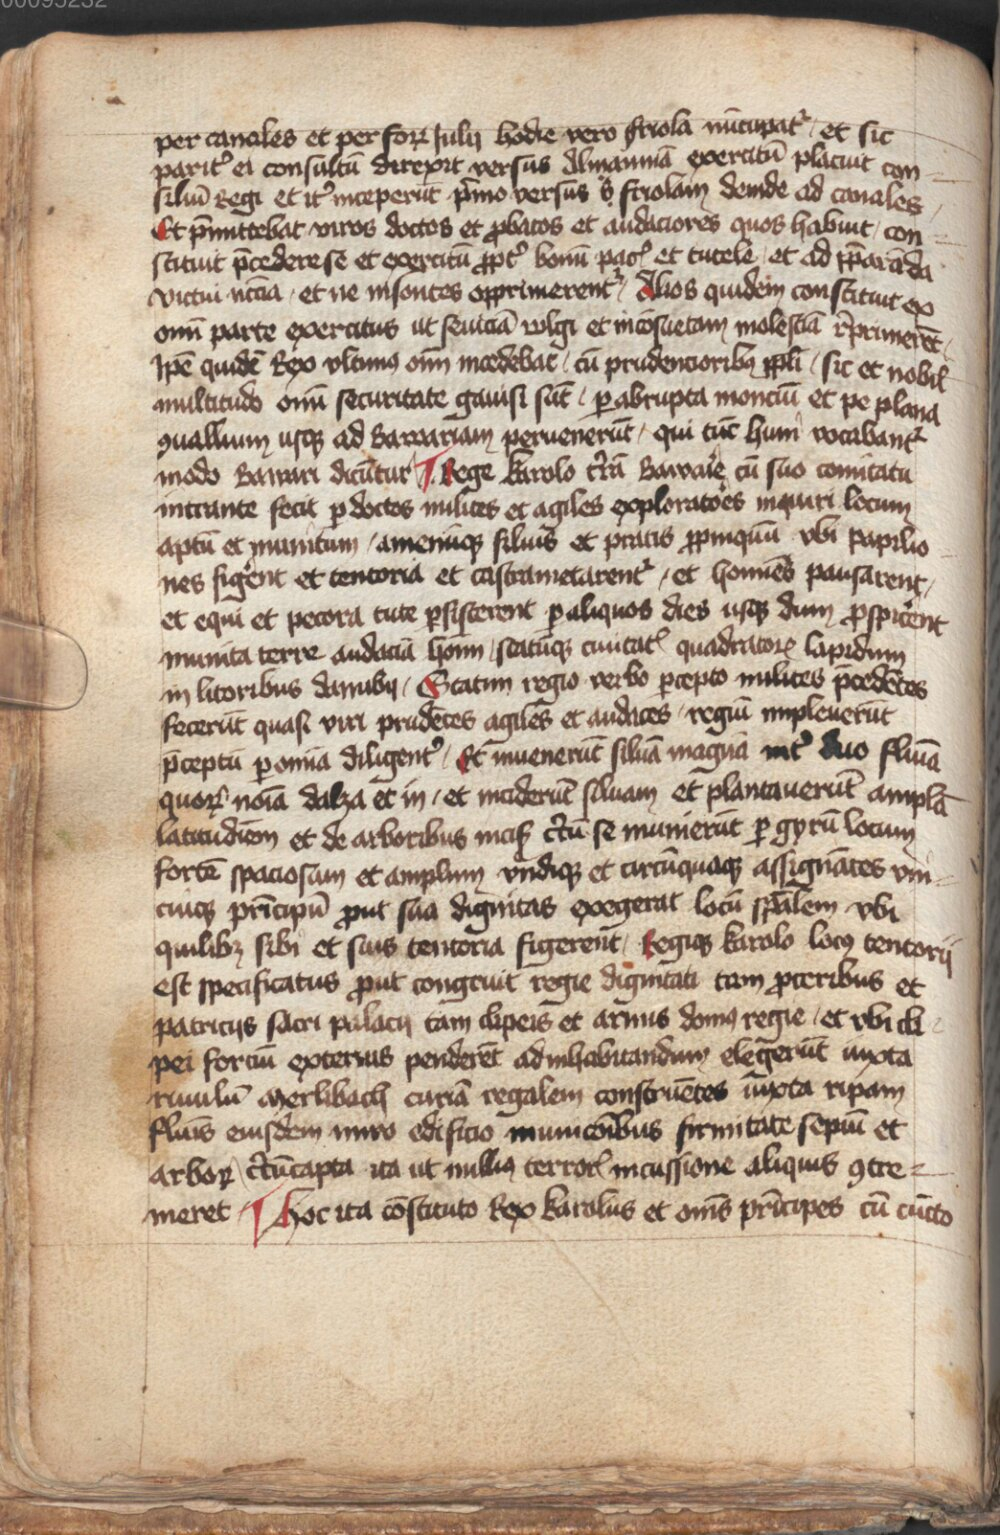 00095232
per canales et per forꝝ Julij hodie vero friola nu̅cupat᷑ / et sic
parit᷑ ei consultu̅ direxit versus Almannia̅ exercitu̅ placuit con
siliu̅ Regi et it᷑ inceperu̅t p̅mo versus friolam deinde ad canales /
Et p̅mittebat viros doctos et ꝓbatos et audaciores quos habuit / con
stituit p̅cedere se et exercitu̅ ꝓpt᷑ bonu̅ pac᷑ et tutele / et ad p̅paranda
victui nccia̅ / et ne insontes opprimerent᷑ / Alios quidem constituit ex
omi̅ parte exercitus ut seuicia̅ wlgi et inco̅suetam molestia̅ rep̅rimere̅t /
Ip̅e quide̅ Rex vltimꝰ om̅i incedebat / cu̅ prudencioribꝰ pp̅li / sic et nobil̅
multitudo om̅i securitate gauisi su̅t / ꝑ abrupta monciu̅ et pe plana
ꝯuallium usqꝫ ad Bawariam peruenerut̅ / qui tu̅c huni vocabant᷑
modo Bawari dicu̅tur ¶ Rege karolo t̅ra̅ Bawarie cu̅ suo comitatu
intrante fecit ꝑ doctos milites et agiles explorato̅es inquiri locum
aptu̅ et munitum / amenu̅qꝫ siluis et pratis ꝓpinquu̅ vbi papilio
nes fige̅rent et tentoria et castrametarent᷑ / et homines pausarent /
et equi et pecora tute ꝑsisterent ꝑ aliquos dies usqꝫ dum ꝓspice̅rent
munita terre audacia̅ ho̅im / statu̅qꝫ ciuitat᷑ quadratorꝝ lapidum
in litoribus danubij / Statim regio verbo ꝑcepto milites p̅cede̅tes
feceru̅t quasi viri prude̅tes agiles et audaces / regiu̅ impleueru̅t
p̅ceptu̅ ꝑ omnia diligent᷑ / Et inueneru̅t silua̅ magna̅ int᷑ duo flui̅a
quorꝝ no̅ia dalza et in / et incideru̅t siluam et plantaueru̅t ampla̅
latitudi̅em et de arboribus incis᷑ c̅tu̅ se munieru̅t ꝑ gyru̅ locum
forte̅ spaciosum et amplum vndiqꝫ et circu̅quaqꝫ assigna̅tes vni
cuiqꝫ principu̅ ꝓut sua dignitas exegerat locu̅ sp̅alem vbi
quilibꝫ sibi et suis tentoria figerent / Regiqꝫ karolo locꝰ tentorij
est specificatus ꝓut congruit regie dignitati tam ꝓceribus et
patricijs sacri palacij tam clipeis et armis domꝰ regie / et vbi cli
pei forciu̅ exterius pendere̅t ad inhabitandum elegeru̅t iuxta
riuulu̅ Merlibach curia̅ regalem construe̅tes iuxta ripam
flui̅s eiusdem miro edificio municio̅ibus firmitate sepiu̅ et
arborꝝ c̅tu̅capta ita ut nulliꝰ terrorꝭ incussione aliquis ꝯtre
meret / ¶ Hoc ita co̅stituto Rex karolus et om̅s principes cu̅ cu̅cto